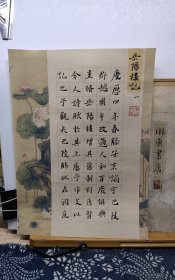 岳陽樓記
慶曆四年春滕子京謫守巴陵
郡越明年政通人和百廢俱興
重脩岳陽樓增其舊制刻唐賢
今人詩賦於其上屬予作文以
記之予觀夫巴陵勝狀在洞庭
東書店